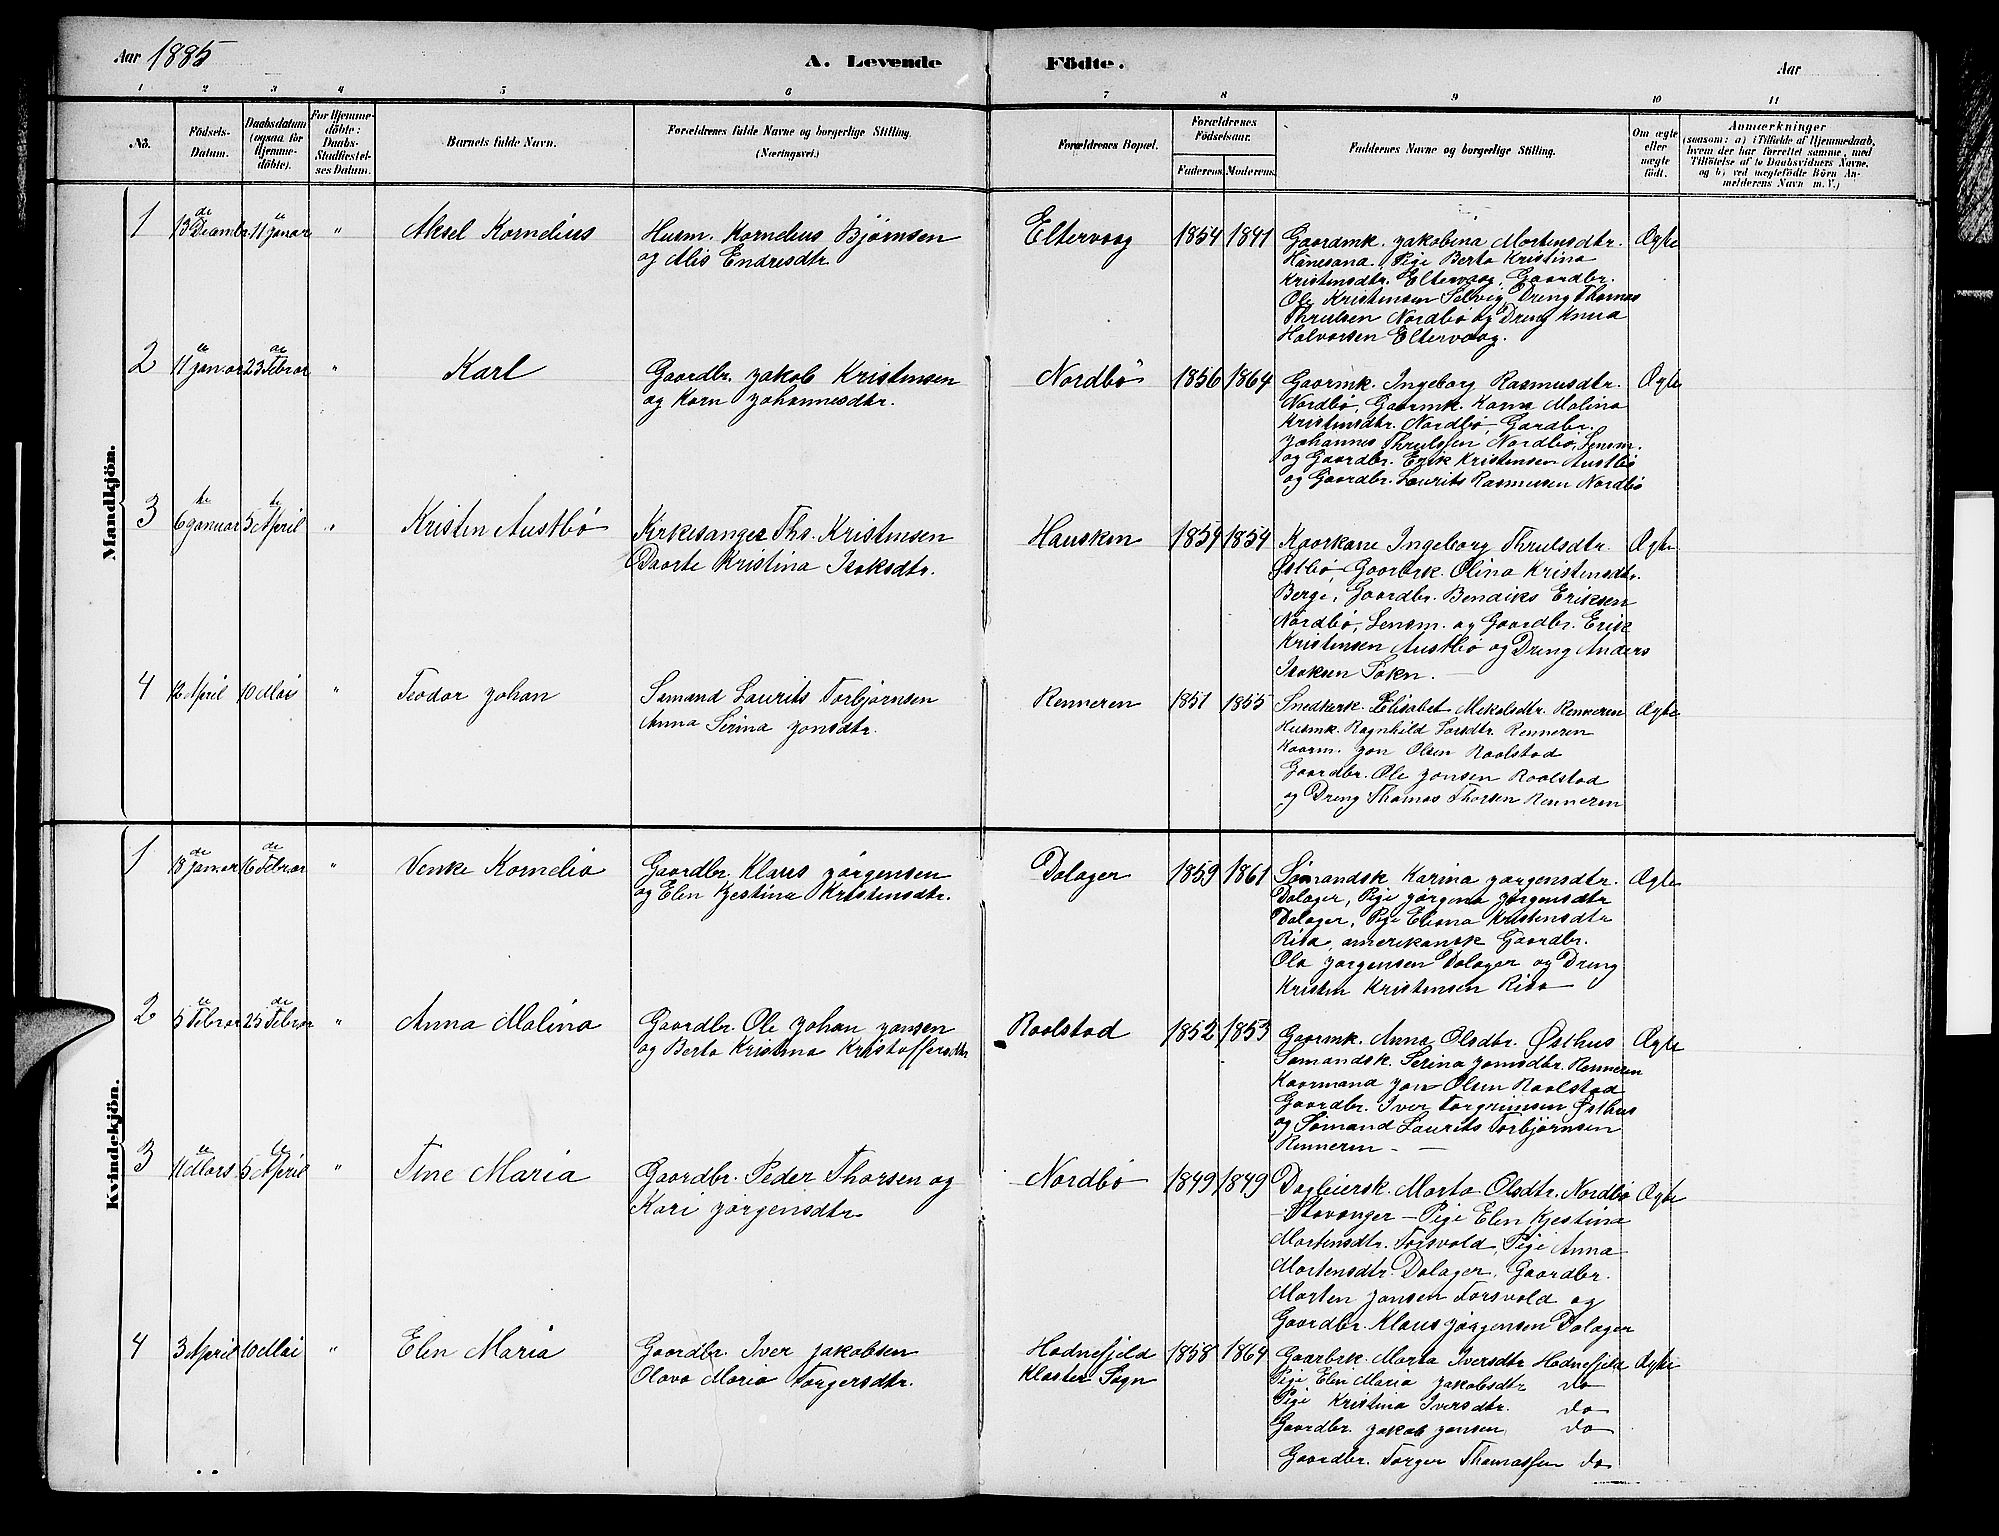 Aar 1885
A. Levende Födte.
Aar
1 2 3 4 5 6 7 8 9 10 11
No.
Födsels-Datum.
Daabsdatum (ogsaa for Hjemmedöbte).
For Hjemmedöbte: Daabs-Stadfæstelses Datum.
Barnets fulde Navn.
Forældrenes fulde Navne og borgerlige Stilling.
(Næringsvei.)
Forældrenes Bopæl.
Forældrenes Födselsaar.
Faderens. Moderens.
Faddernes Navne og borgerlige Stilling.
Om ægte eller uægte födt.
Anmærkninger
(saasom: a) i Tilfælde af Hjemmedaab, hvem der har forrettet samme, med Tilföielse af to Daabsvidners Navne, og b) ved uægtefödte Börn Anmelderens Navn m. V.)
Mandkjön.
1 13de Decembr. 11te Januar " Aksel Kornelius
Husm. Kornelius Bjørnsen
og Alis Endresdtr.
Eltervaag 1854 1841
Gaardmk. Jakobina Mortensdtr.
Hanesana. Pige Berta Kristina
Kristensdtr. Eltervaag, Gaardbr.
Ole Kristensen Selvig, Dreng Thomas
Thrulsen Nordbø og Dreng Knud
Halvorsen Eltervaag.
Ægte
2 11te Januar 23de Februar " Karl
Gaardbr. Jakob Kristensen
og Karn Johannesdtr.
Nordbø 1856 1864
Gaarmk. Ingeborg Rasmusdtr.
Nordbø, Gaarmk. Karna Malina
Kristensdtr. Nordbø, Gardbr.
Johannes Thrulssen Nordbø, Lensm.
og Gaardbr. Erik Kristensen Austbø
og Gaardbr. Laurits Rasmussen Nordbø
Ægte
3 6te Januar 5te April " Kristen Austbø
Kirkesanger Ths. Kristensen
Daarte Kristina Isaksdtr.
Hausken 1854 1854
Kaarkone Ingeborg Thrulsdtr.
Østbø, Gaardbrk. Olina Kristensdtr.
Berge, Gaardbr. Bendiks Eriksen
Nordbø, Lensm. og Gaardbr. Erik
Kristensen Austbø og Dreng Anders
Isaksen Sokn. —
Ægte
4 12 April 10 Mai " Teodor Johan
Sømand Laurits Torbjørnsen
Anna Serina Jonsdtr.
Renneren 1851 1855
Snedkersk. Elisabet Mikalsdtr. Renneren
Husmk. Ragnhild Larsdtr. Renneren
Kaarm. Jon Olsen Raalstad
Gaardbr. Ole Jonsen Raalstad
og Dreng Thomas Thorsen Renneren
Ægte
Kvindekjön.
1 18de Januar 16de Februar " Venke Kornelia
Gaardbr. Klaus Jørgensen
og Elen Kjestina Kristensdtr.
Dalager 1859 1861
Sømandsk Karina Jørgensdtr.
Dalager, Pige Jørgena Jørgensdtr
Dalager, Pige Eliana Kristensdtr
Risa, amerikansk Gaardbr.
Ola Jørgensen Dalager og Dreng
Kristen Kristensen Risa —
Ægte
2 5te Februar 25de Februar " Anna Malina
Gaardbr. Ole Johan Jansen
og Berta Kristina Kristoffersdtr.
Raalstad 1852 1853
Gaarmk. Anna Olsdtr. Østhus
Sømandsk. Serina Jonsdtr. Renneren
Kaarmand Jon Olsen Raalstad
Gaardbr. Iver Torgrimsen Østhus
og Sømand Laurits Torbjørnsen
Renneren —
Ægte
3 11te Mars 5te April " Tine Maria
Gaardbr. Peder Thorsen og
Kari Jørgensdtr.
Nordbø 1849 1849
Dagleiersk. Marta Olsdtr. Nordbø
— Stavanger — Pige Elen Kjestina
Mortensdtr. Torsvold, Pige Anna
Mortensdtr. Dalager, Gaardbr.
Morten Jansen Torsvold og
Gaardbr. Klaus Jørgensen Dalager
Ægte
4 3 April 10 Mai " Elen Maria
Gaardbr. Iver Jakobsen
Olava Maria Torgersdtr.
Hodnefjeld
Kloster Sogn
1858 1864
Gaarbrk. Marta Iversdtr Hodnefjeld
Pige Elen Maria Jakobsdtr do
Pige Kristina Iversdtr. do
Gaardbr. Jakob Jansen do
Gaardbr. Torger Thomassen do
Ægte